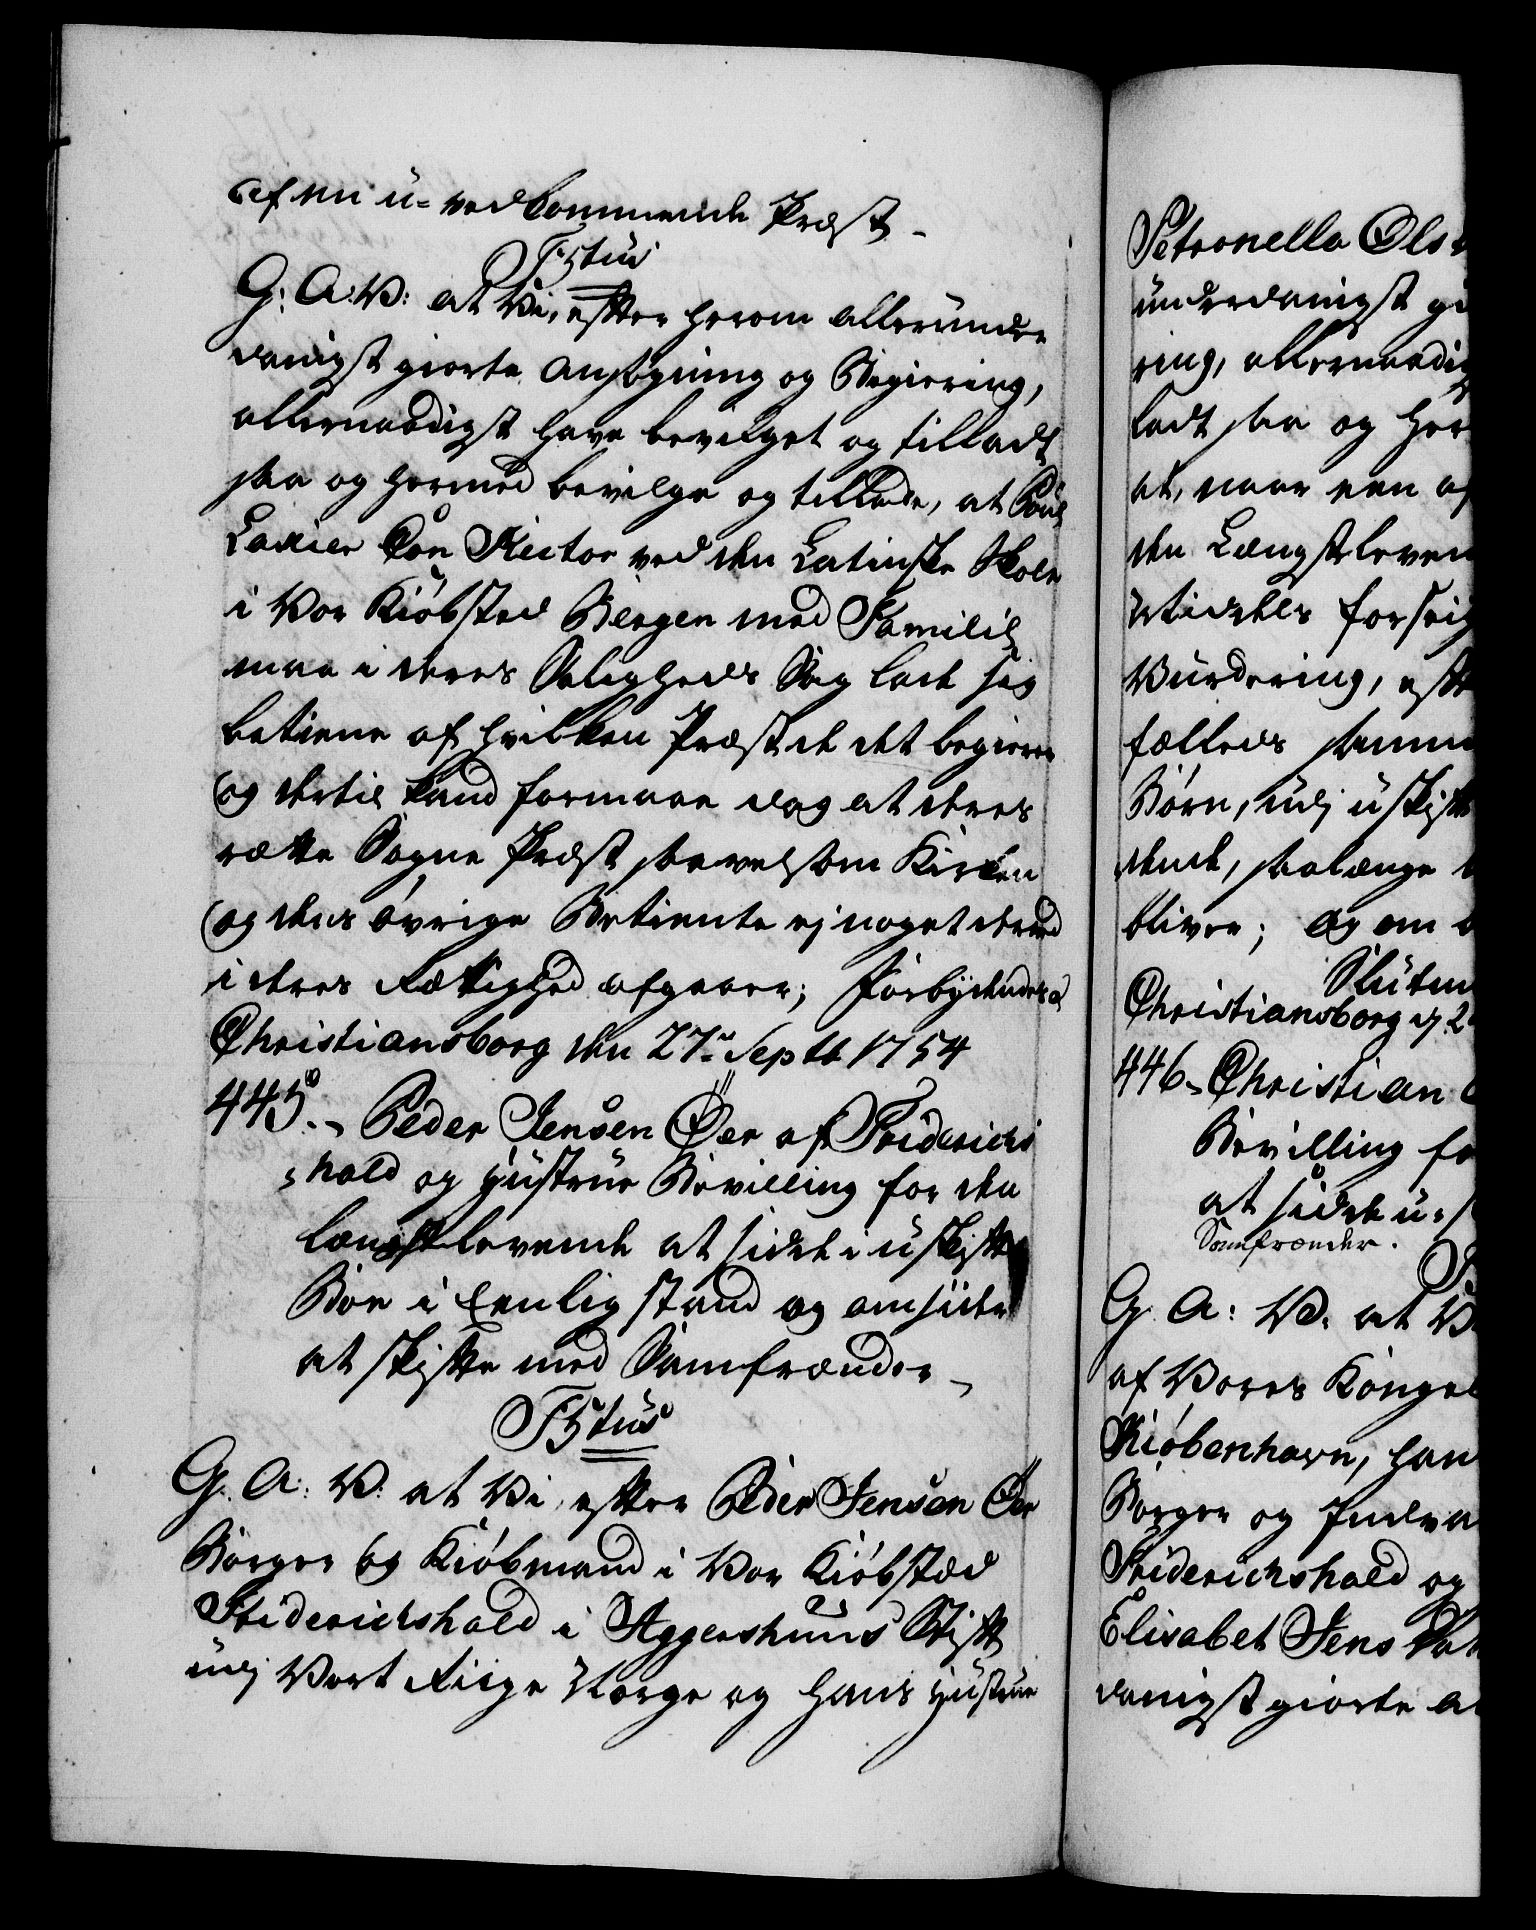 af en u-vedkommende Præst.
F5tus
G: A: V: at Vi, efter herom allerunder
danigst giorte Ansøgning og Begiering,
allernaadigst have bevilget og tilladt
saa og hermed bevilge og tillade, at
Con Rector ved den Latinske Skole
i Vor Kiøbsted Bergen med Familie
maa i deres Saligheds Sag lade sig
betiene af hvilken Præst de det begierer
og dertil kand formaae dog at deres
rætte Sogne Præst saavelsom Kirken
og dens øvrige Betiente ej noget derved
i deres Rættighed afgaaer; Forbydendes
Christiansborg den 27de Septb 1754
445. Peder Jensen Øer af Friderichs
hald og Hustrue Bevilling for den
længstlevende at sidde i uskiftet
Boe i Eenlig stand og omsider
at skifte med Samfrænder
F5tus
G. A: V: at Vi, efter Peder Jensen Øer
Borger og Kiøbmand i Vor Kiøbstæd
Friderichshald i Aggershuus Stift
udj Vort Rige Norge og hans Hustrue
Petronella Ols
underdanigst gi
ring, allernaadig
ladt saa og her
at, naar een af
den Længstleven
Vurdering, eft
fælleds
Børn, udj uskift
dende, saalænge
bliver; og om
Slutn
Christiansborg d. 2
446. Christian
Bevilling for
at sidde u-s
Samfrænder.
G. A: V: at V
af Vores Kongel
Kiøbenhavn, han
Borger og Indvaa
Friderichshald og
Elisabet Jens Dat
danigst giorte A